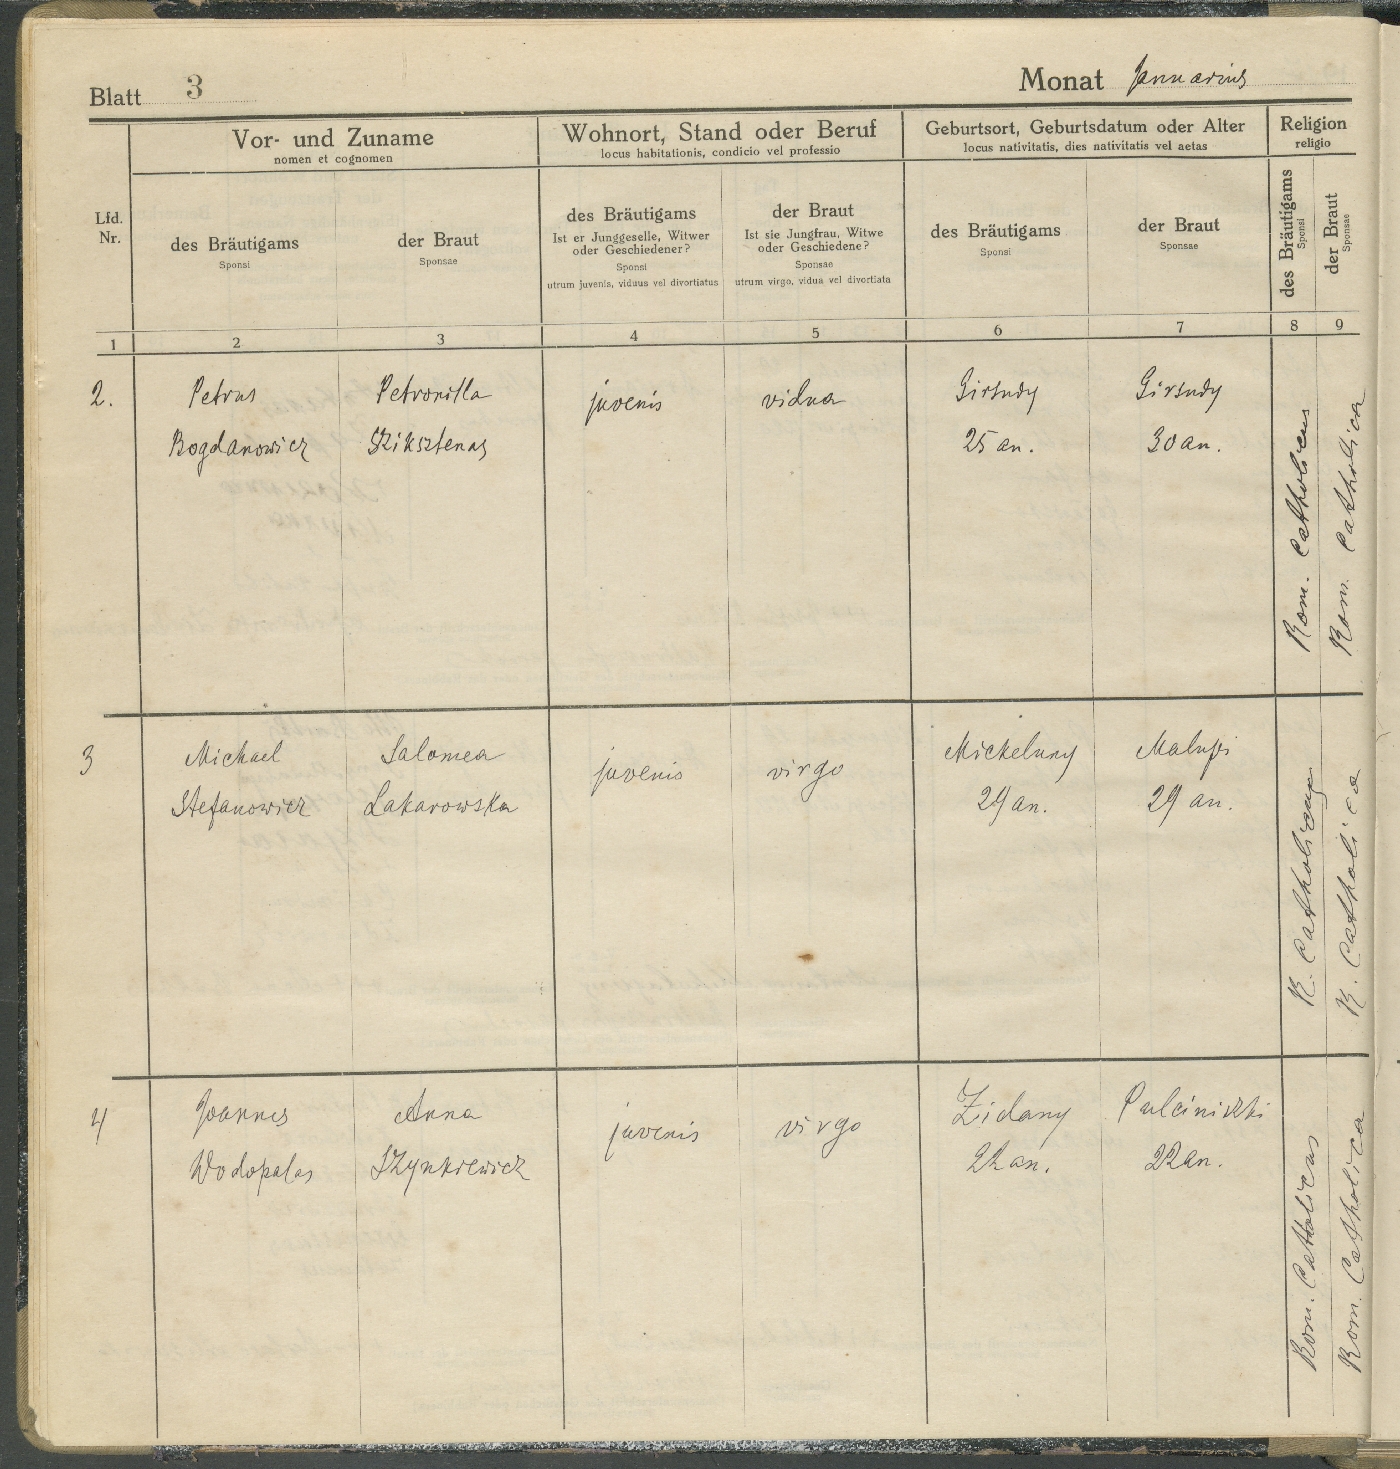 Blatt 3
Monat Januarius
Vor- und Zuname
nomen et cognomen
Wohnort, Stand oder Beruf
locus habitationis, condicio vel professio
Geburtsort, Geburtsdatum oder Alter
locus nativitatis, dies nativitatis vel aetas
Religion
religio
Lfd.
Nr.
des Bräutigams
Sponsi
der Braut
Sponsae
des Bräutigams
Ist er Junggeselle, Witwer
oder Geschiedener?
Sponsi
utrum juvenis, viduus vel divortiatus
der Braut
Ist sie Jungfrau, Witwe
oder Geschiedene?
Sponsae
utrum virgo, vidua vel divortiata
des Bräutigams
Sponsi
der Braut
Sponsae
des Bräutigams
Sponsi
der Braut
Sponsae
1 2 3 4 5 6 7 8 9
2. Petrus Petronilla juvenis vidua Girsudy Girsudy
Bogdanowicz Sziksztenas 25 an. 30 an.
Rom. Catholicus
Rom. Catholica
3 Michael Salomea juvenis virgo Mickeluny
Stefanowicz Lakarowska 29 an. 29 an.
R. Catholicus
R. Catholica
4 Joannes Anna juvenis virgo Zidany Pulciniszki
Wodopalas Szynkiewicz 22 an. 22 an.
Rom. Catholicus
Rom. Catholica